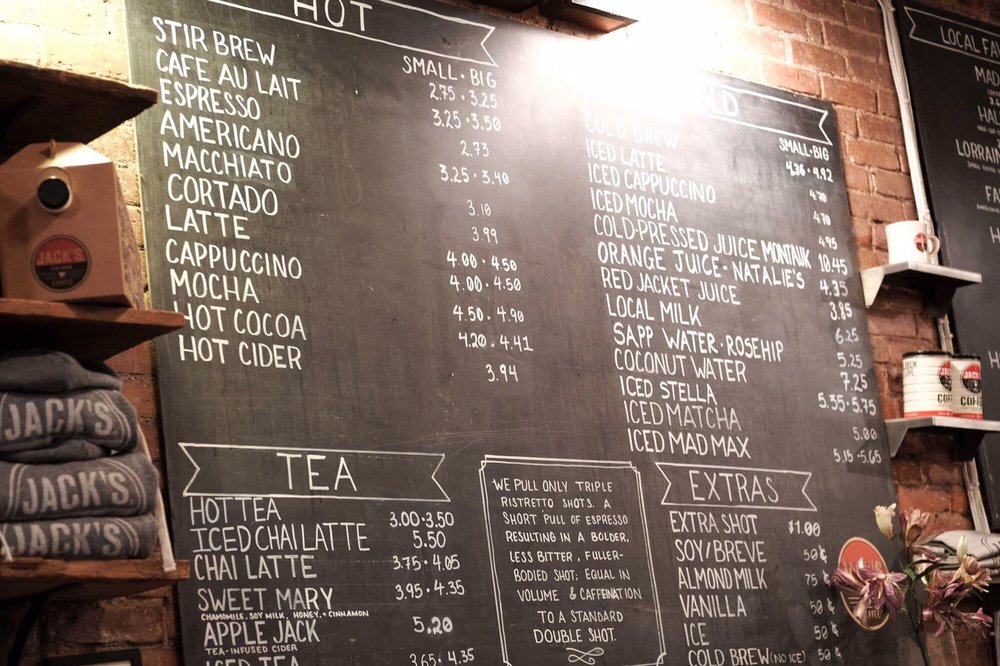 HOT
SMALL · BIG
STIR BREW 2.75 · 3.25
CAFE AU LAIT 3.25 · 3.50
ESPRESSO 2.73
AMERICANO 3.25 · 3.40
MACCHIATO 3.10
CORTADO 3.99
LATTE 4.00 · 4.50
CAPPUCCINO 4.00 · 4.50
MOCHA 4.50 · 4.90
HOT COCOA 4.20 · 4.41
HOT CIDER 3.94
TEA
HOT TEA 3.00 · 3.50
ICED CHAI LATTE 5.50
CHAI LATTE 3.75 · 4.05
SWEET MARY 3.95 · 4.35
CHAMOMILE, SOY MILK, HONEY, + CINNAMON
APPLE JACK 5.20
TEA-INFUSED CIDER
ICED TEA 3.65 · 4.35
WE PULL ONLY TRIPLE
RISTRETTO SHOTS. A
SHORT PULL OF ESPRESSO
RESULTING IN A BOLDER,
LESS BITTER, FULLER-
BODIED SHOT, EQUAL IN
VOLUME & CAFFEINATION
TO A STANDARD
DOUBLE SHOT.
COLD
SMALL · BIG
COLD BREW 4.36 · 4.92
ICED LATTE 4.70
ICED CAPPUCCINO 4.70
ICED MOCHA 4.95
COLD-PRESSED JUICE MONTAUK 10.45
ORANGE JUICE · NATALIE'S 4.35
RED JACKET JUICE 3.85
LOCAL MILK 6.25
SAPP WATER · ROSEHIP 5.25
COCONUT WATER 7.25
ICED STELLA 5.35 · 5.75
ICED MATCHA 5.00
ICED MAD MAX 5.15 · 5.65
EXTRAS
EXTRA SHOT $1.00
SOY/BREVE 50¢
ALMOND MILK 75¢
VANILLA 50¢
ICE 50¢
COLD BREW (NO ICE) 50¢
LOCAL
LORRAIN
JACK'S
STIR BREW
COFFEE
JACK'S
JACK'S
JACK'S
JACK'S